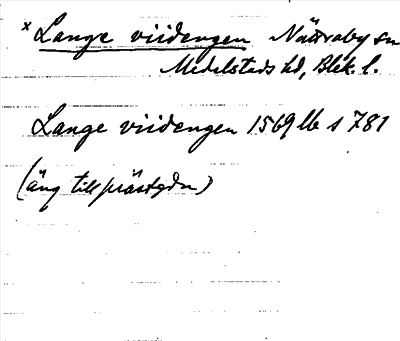 x Lange viidengen Nättraby sn
Medelstads hd, Blek. l.
Lange viidengen 1569 lb s 781
(äng till prästgdn)